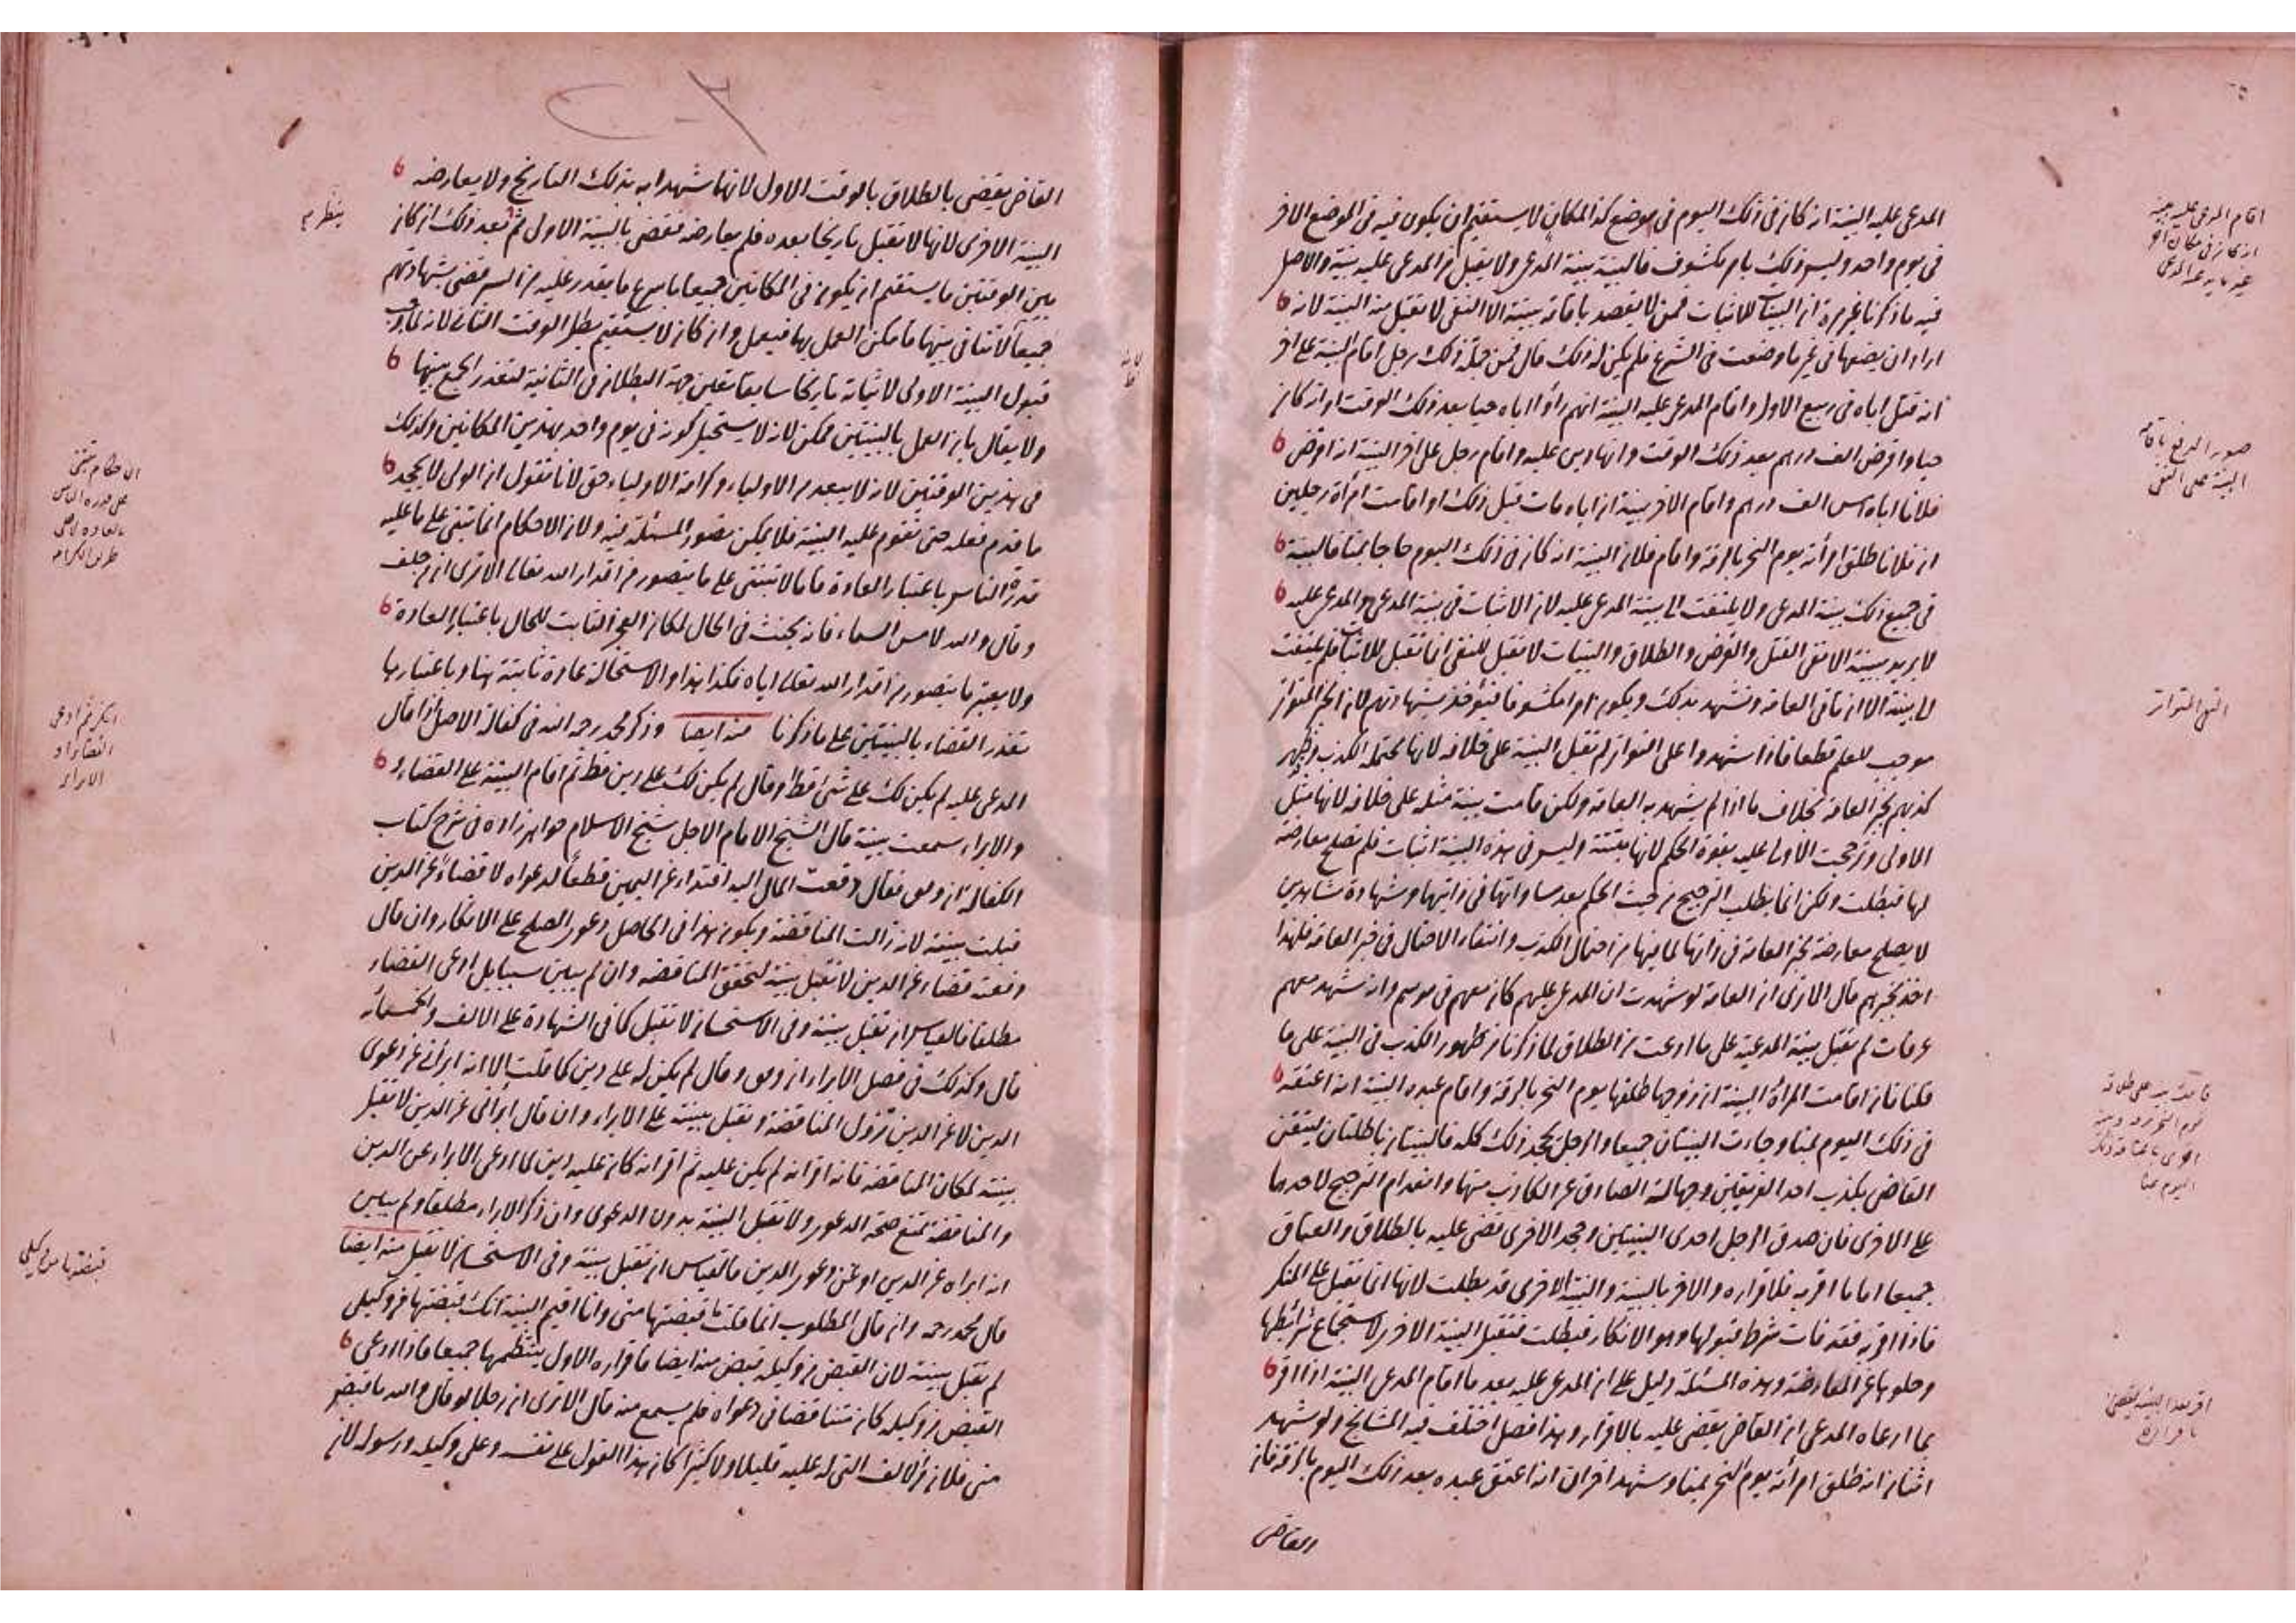 المدعى عليه البينة انه كان فى ذلك اليوم فى موضع كذا لمكان لا يستقيم ان يكون فيه فى الموضع الاخر
فى يوم واحد وليس ذلك بامر مكشوف فالبينة بينة المدعى ولا يقبل من المدعى عليه بينة والاصل
فيه ما ذكرنا غير مرة ان البينات للاثبات فمن لا يقصد باقامة بينته الا النفى لا تقبل منه البينة لانه
اراد ان يضعها فى غير ما وضعت فى الشرع فلم يكن له ذلك قال فمن جملة ذلك رجل اقام البينة على اخر
انه قتل اباه فى ربيع الاول واقام المدعى عليه البينة انهم رأوا اباه حيا بعد ذلك الوقت او انه كان
حيا واقرض الف درهم بعد ذلك الوقت وانها دين عليه واقام رجل على اخر البينة انه اقرض
فلانا اباه امس الف درهم واقام الاخر بينة ان اباه مات قبل ذلك او اقامت امرأة رجلين
ان فلانا طلق امرأته يوم النحر بالرقة واقام فلان البينة انه كان فى ذلك اليوم حاجا بمنا فالبينة
فى جميع ذلك بينة المدعى ولا يلتفت الى بينة المدعى عليه لان الاثبات فى بينة المدعى والمدعى عليه
لا يريد ببينته الا نفى القتل والقرض والطلاق والبينات لا تقبل للنفى انما تقبل للاثبات فلم يلتفت
الى بينته الا ان تاتى العامة وتشهد بذلك ويكون امرا مكشوفا فيؤخذ بشهادتهم لان الخبر المتواتر
موجب للعلم قطعا فاذا شهدوا على التواتر لم تقبل البينة على خلافه لانها محتملة الكذب وظهر
كذبهم بخبر العامة بخلاف ما اذا لم يشهد به العامة ولكن قامت بينة مثله على خلافه لانها مثل
الاولى وترجحت الاولى عليه بقوة الحكم لانها مثبتة وليس فى هذه البينة اثبات فلم تصلح معارضة
لها فبطلت ولكن انما يطلب الترجيح من حيث الحكم بعد مساواتها فى ذاتها وشهادة شاهدين
لا يصلح معارضة بخبر العامة فى ذاتها لما فيها من احتمال الكذب وانتفاء الاحتمال فى خبر العامة فلهذا
اخذ بخبرهم قال الا ترى ان العامة لو شهدت ان المدعى عليهم كان معهم فى موسم وانه شهد معهم
عرفات لم تقبل بينة المدعية على ما ادعت من الطلاق لما ذكرنا من ظهور الكذب فى البينة على ما
قلنا فان اقامت المرأة البينة ان زوجها طلقها يوم النحر بالرقة واقام عبده البينة انه اعتقه
فى ذلك اليوم بمنا وجاءت البينتان جميعا والرجل يجحد ذلك كله فالبينتان باطلتان لتيقن
القاضى بكذب احد الفريقين وجهالة الصادق عن الكاذب منهما وانعدام الترجيح لاحدهما
على الاخرى فان صدق الرجل احدى البينتين وجحد الاخرى قضى عليه بالطلاق والعتاق
جميعا اما ما اقر به فلاقراره والاخر بالبينة والبينة الاخرى قد بطلت لانها انما تقبل على المنكر
فاذا اقر به فقد فات شرط قبولها وهو الانكار فبطلت فتقبل البينة الاخرى لاستجماع شرائطها
وخلوها عن المعارضة وهذه المسئلة دليل على ان المدعى عليه بعد ما اقام المدعى البينة اذا اقر
بما ادعاه المدعى ان القاضى يقضى عليه بالاقرار وهذا فصل اختلف فيه المشايخ ولو شهد
اثنان انه طلق امرأته يوم النحر بمنا وشهد اخران انه اعتق عبده بعد ذلك اليوم بالرقة فان
القاضى
اقام المدعى عليه بينة
انه كان فى مكان اخر
صور الدفع باقامة
البينة على النفى
النفى المتواتر
اقر بعد البينة يقضى
باقراره
القاضى يقضى بالطلاق بالوقت الاول لانها شهدا به بذلك التاريخ ولا يعارضه
البينة الاخرى لانها لا تقبل تاريخا بعده فلم يعارضه فقضى بالبينة الاول ثم بعد ذلك ان كان
بين الوقتين ما يستقيم ان يكون فى المكانين جميعا باسرع ما يقدر عليه من السير قضى بشهادتهم
جميعا لا تنافى بينهما فامكن العمل بها فيعمل وان كان لا يستقيم بطل الوقت الثانى لانه لما وجب
قبول البينة الاولى لاثباته تاريخا سابقا تعين جهة البطلان فى الثانية لتعذر الجمع بينهما
ولا يقال بان العمل بالبينتين ممكن لانه لا يستحيل كونه فى يوم واحد بهذين المكانين وكذلك
فى هذين الوقتين لانه لا يبعد من الاولياء وكرامة الاولياء حق لانا نقول ان الولى لا يجحد
ما قدم فعله حتى تقوم عليه البينة فلا يمكن تصور المسئلة فيه ولان الاحكام انما تبتنى على ما عليه
قدرة الناس باعتبار العادة فاما لا تبتنى على ما يتصور من اقدار الله تعالى الا ترى ان من حلف
وقال والله لامس السماء فانه يحنث فى الحال لمكان العجز الثابت للحال باعتبار العادة
ولا يعتبر ما يتصور من اقدار الله تعالى اياه فكذا هذا والاستحالة عادة ثابتة هنا وباعتبارها
تعذر القضاء بالبينتين على ما ذكرنا منه ايضا وذكر محمد رحمه الله فى كفالة الاصل اذا قال
المدعى عليه لم يكن لك على شئ قط او قال لم يكن لك على دين قط ثم اقام البينة على القضاء او
والابراء سمعت بينته قال الشيخ الامام الاجل شيخ الاسلام خواهر زاده فى شرح كتاب
الكفالة ان وفق فقال دفعت المال اليه افتداء عن اليمين قطعا لدعواه لا قضاء عن الدين
قبلت بينته لانه زالت المناقضة ويكون هذا فى الحاصل دعوى الصلح على الانكار وان قال
دفعته قضاء عن الدين لا تقبل بينته لتحقق المناقضة وان لم يبين سببا بل ادعى القضاء
مطلقا فالقياس ان تقبل بينته وفى الاستحسان لا تقبل كما فى الشهادة على الالف والخمسمائة
قال وكذلك فى فصل الابراء ان وفق وقال لم يكن له على دين كما قلت الا انه ابرأنى عن دعوى
الدين لا عن الدين تزول المناقضة وتقبل بينته على الابراء وان قال ابرأنى عن الدين لا تقبل
بينته لمكان المناقضة فانه اقر انه لم يكن عليه ثم اقر انه كان عليه دين لما ادعى الابراء عن الدين
والمناقضة تمنع صحة الدعوى ولا تقبل البينة بدون الدعوى وان ذكر الابراء مطلقا ولم يبين
انه ابراه عن الدين او عن دعوى الدين فالقياس ان تقبل بينته وفى الاستحسان لا تقبل منه ايضا
قال محمد رحمه وان قال المطلوب انما قلت ما قبضتها منى وانا اقيم البينة انك قبضتها من وكيلى
لم تقبل بينته لان القبض من وكيله قبض منه ايضا فاقراره الاول ينتظمها جميعا فاذا ادعى
القبض من وكيله كان متناقضا فى دعواه فلم يسمع منه قال الا ترى ان رجلا لو قال والله ما قبض
منى فلان من الالف التى له عليه قليلا ولا كثيرا كان هذا القول على نفسه وعلى وكيله ورسوله لان
الاحكام تبتنى
على قدرة الناس
بالعادة لا على
طريق الكرامة
انكر ثم ادعى
القضاء او
الابراء
قبضتها من وكيلى